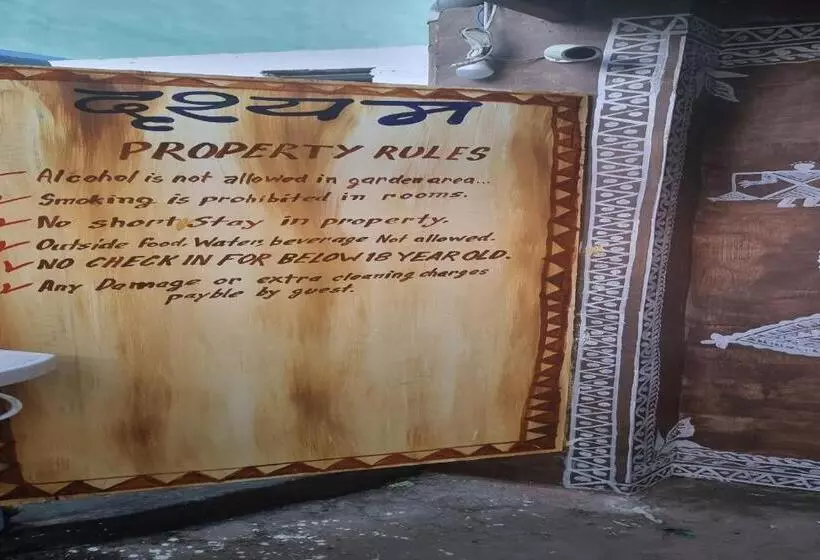 दृश्यम
PROPERTY RULES
Alcohol is not allowed in garden area...
Smoking is prohibited in rooms.
No short Stay in property.
Outside Food, Water, beverage Not allowed.
NO CHECK IN FOR BELOW 18 YEAR OLD.
Any Damage or extra cleaning charges
payble by guest.